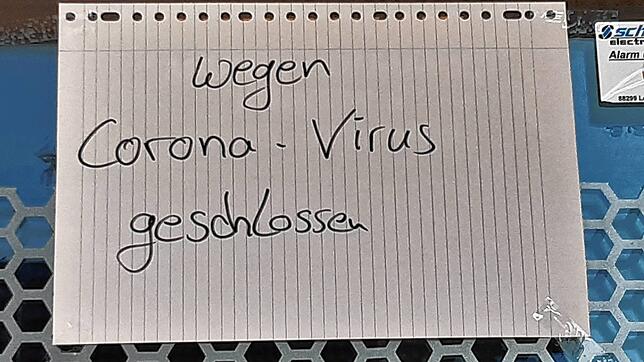 wegen
Corona - Virus
geschlossen
electr
Alarm
88299 L